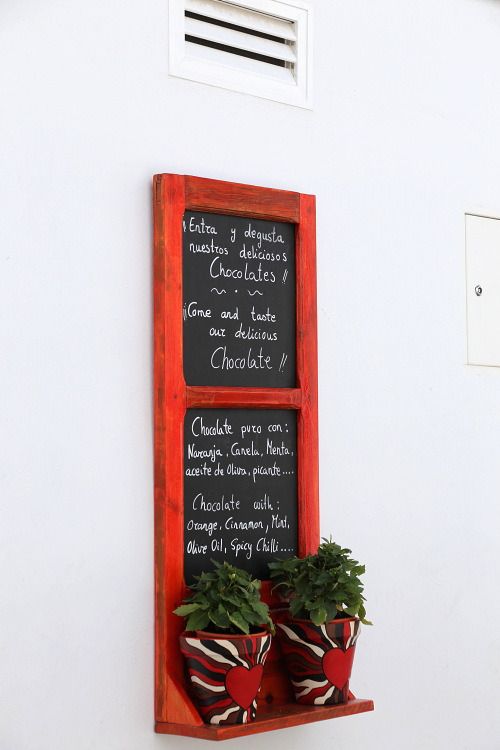 ¡¡Entra y degusta
nuestros deliciosos
Chocolates!!
¡¡Come and taste
our delicious
Chocolate!!
Chocolate puro con:
Naranja, Canela, Menta,
aceite de Oliva, picante....
Chocolate with:
Orange, Cinnamon, Mint,
Olive Oil, Spicy Chilli....